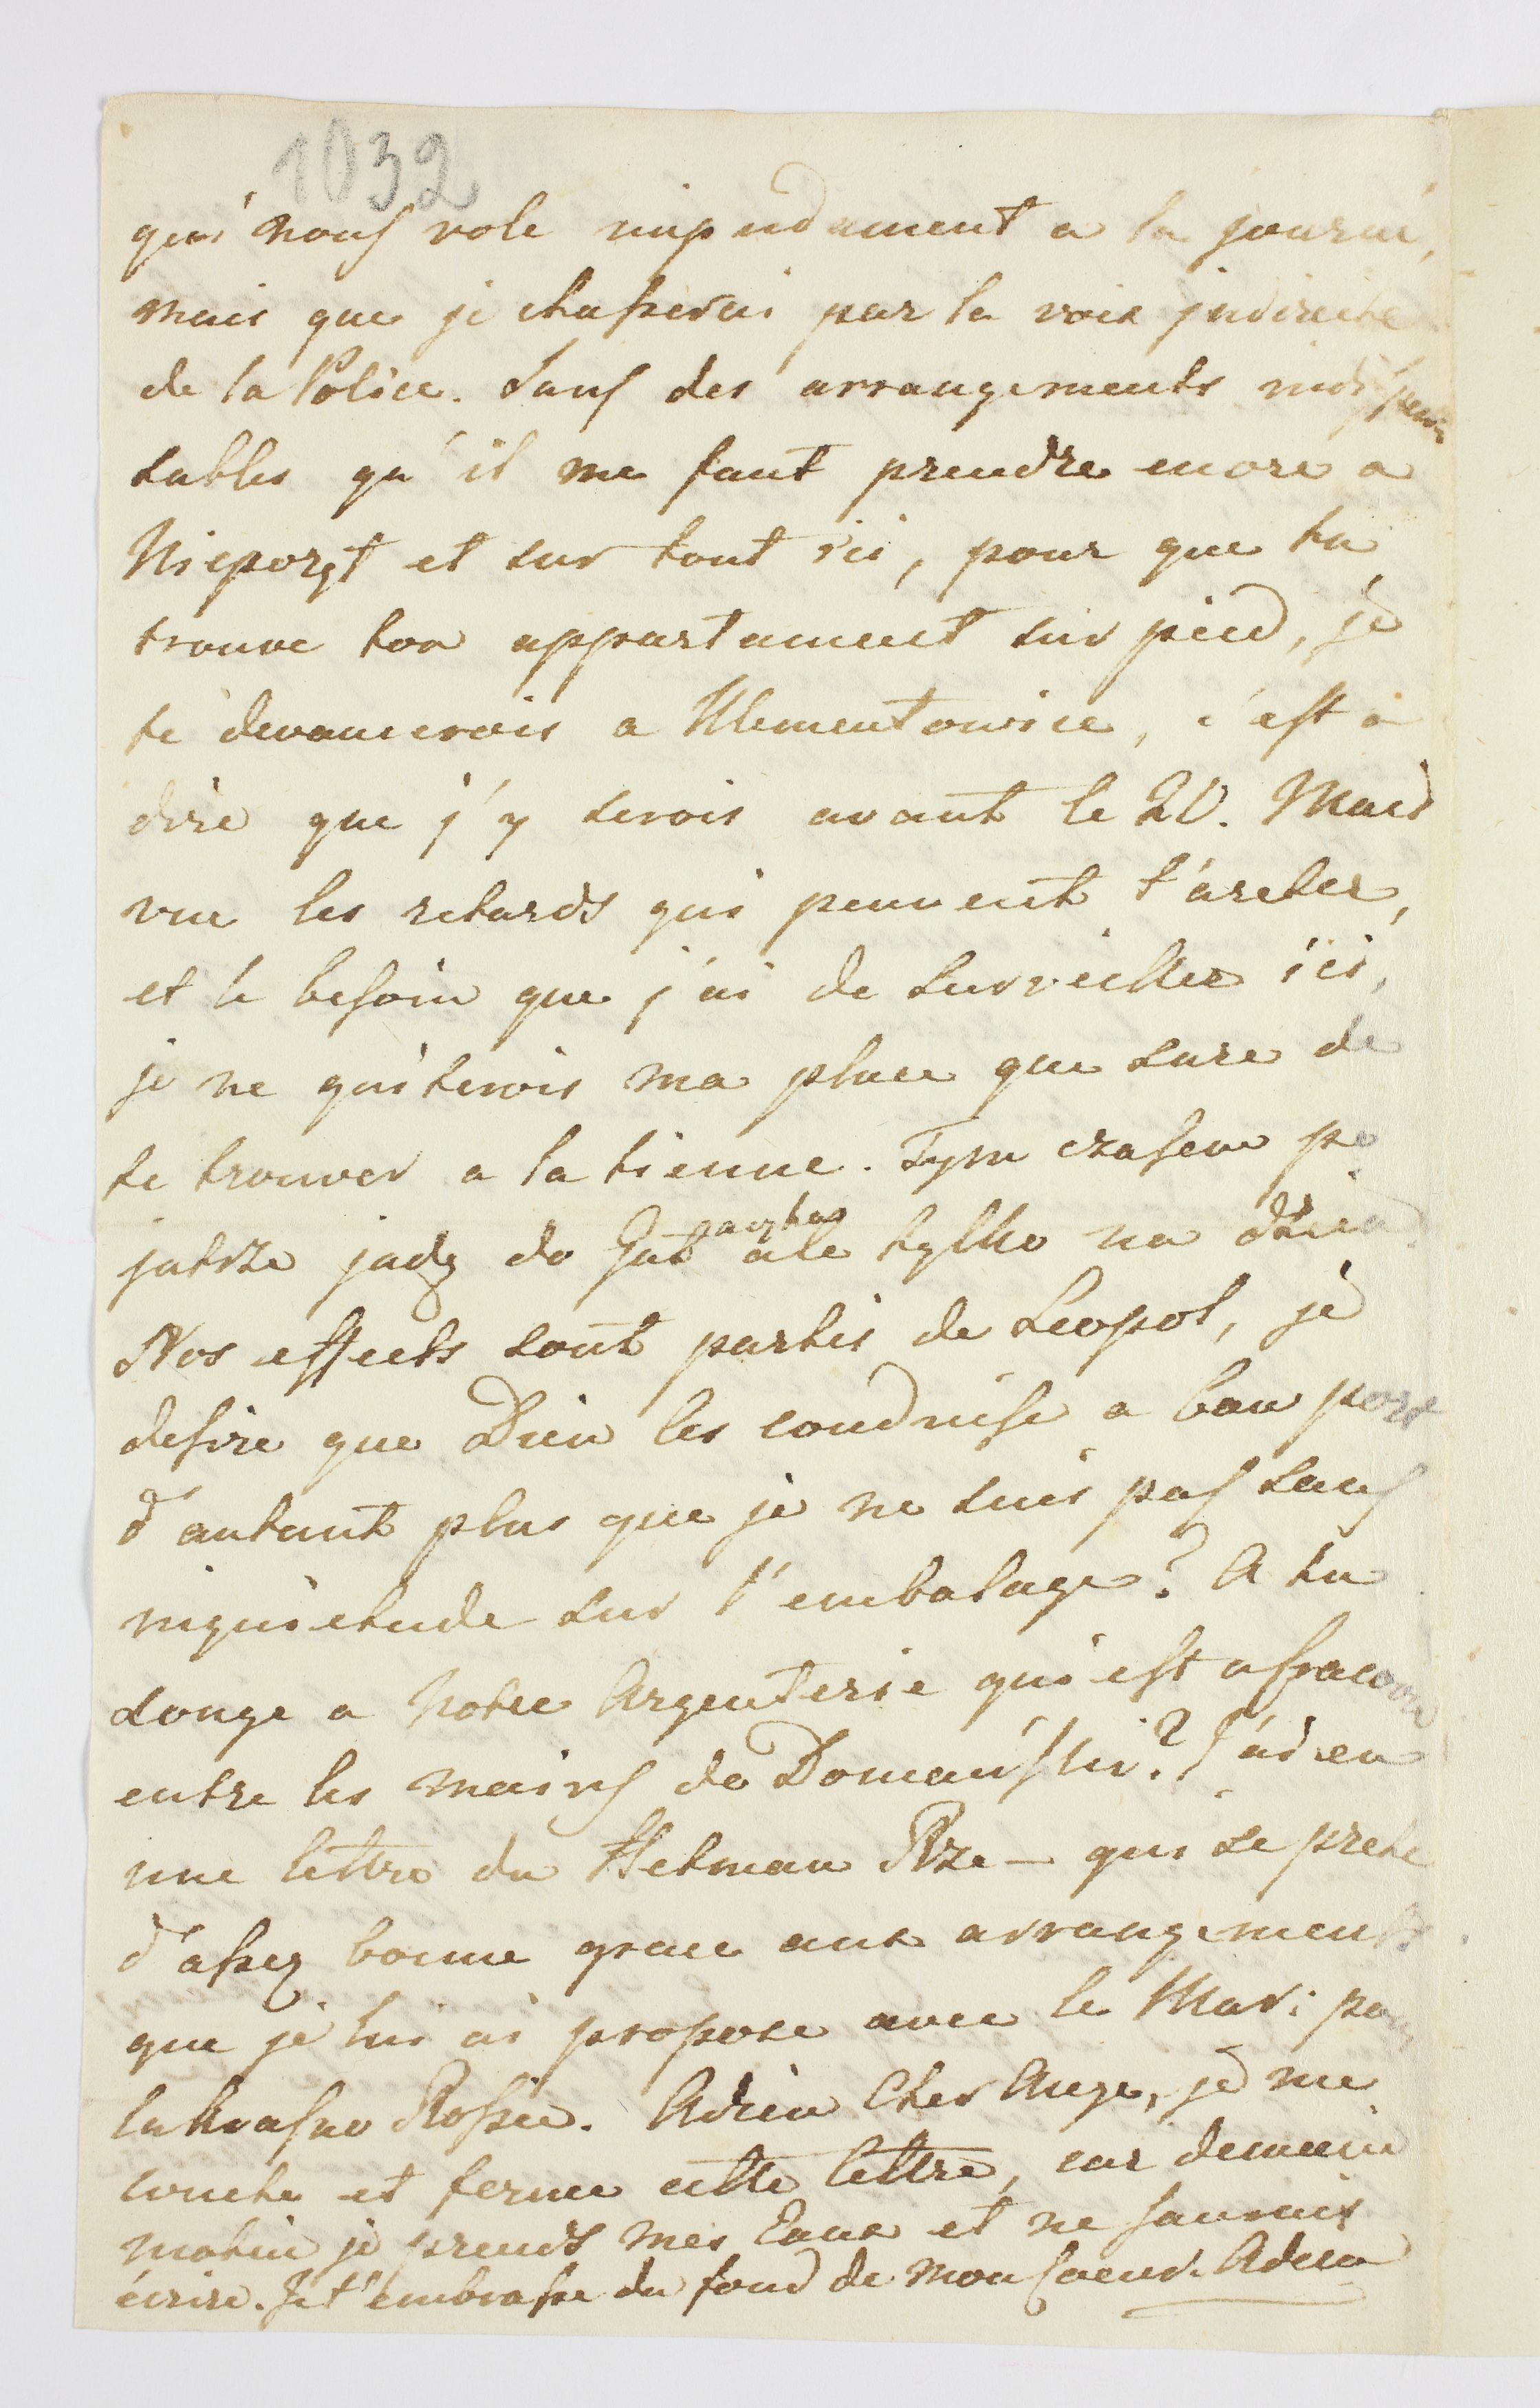 1032
qui nous vole impudament a la journé,
mais que je chasserai par la voix indirecte
de la Police. Sans des arrangements indispen
sables qu'il me faut prendre encore a
Nieporęt et sur tout ici, pour que tu
trouve ton appartament sur pied, je
te devancerois a Klementowice, c'est à
dire que j'y serois avant le 20. Mais
vue les retards qui peuvent t'areter,
et le besoin que j'ai de surveiller ici,
je ne quiterois ma place que sure de
te trouver a la tienne. Tym czasem po
jutrze jadę do Gut ale tylko na dzień
Nos effects sont partis de Leopol, je
desire que Dieu les conduise a bon port
d'autant plus que je ne suis pas sans
inquietude sur l'embalage? A tu
songe a notre Argenterie qui est
entre les mains de Domański? J'ai eu
une lettre du Hetman Rze- qui se prete
d'assez bonne grace aux arrangements
que je lui ai propose avec le Mari pour
la Krasno Rossie. Adieu Cher Ange, je me
couche et ferme cette lettre, car demain
matin je prends mes Eaux et ne saurais
écrire. Je t'embrasse du fond de mon Coeur. Adieu